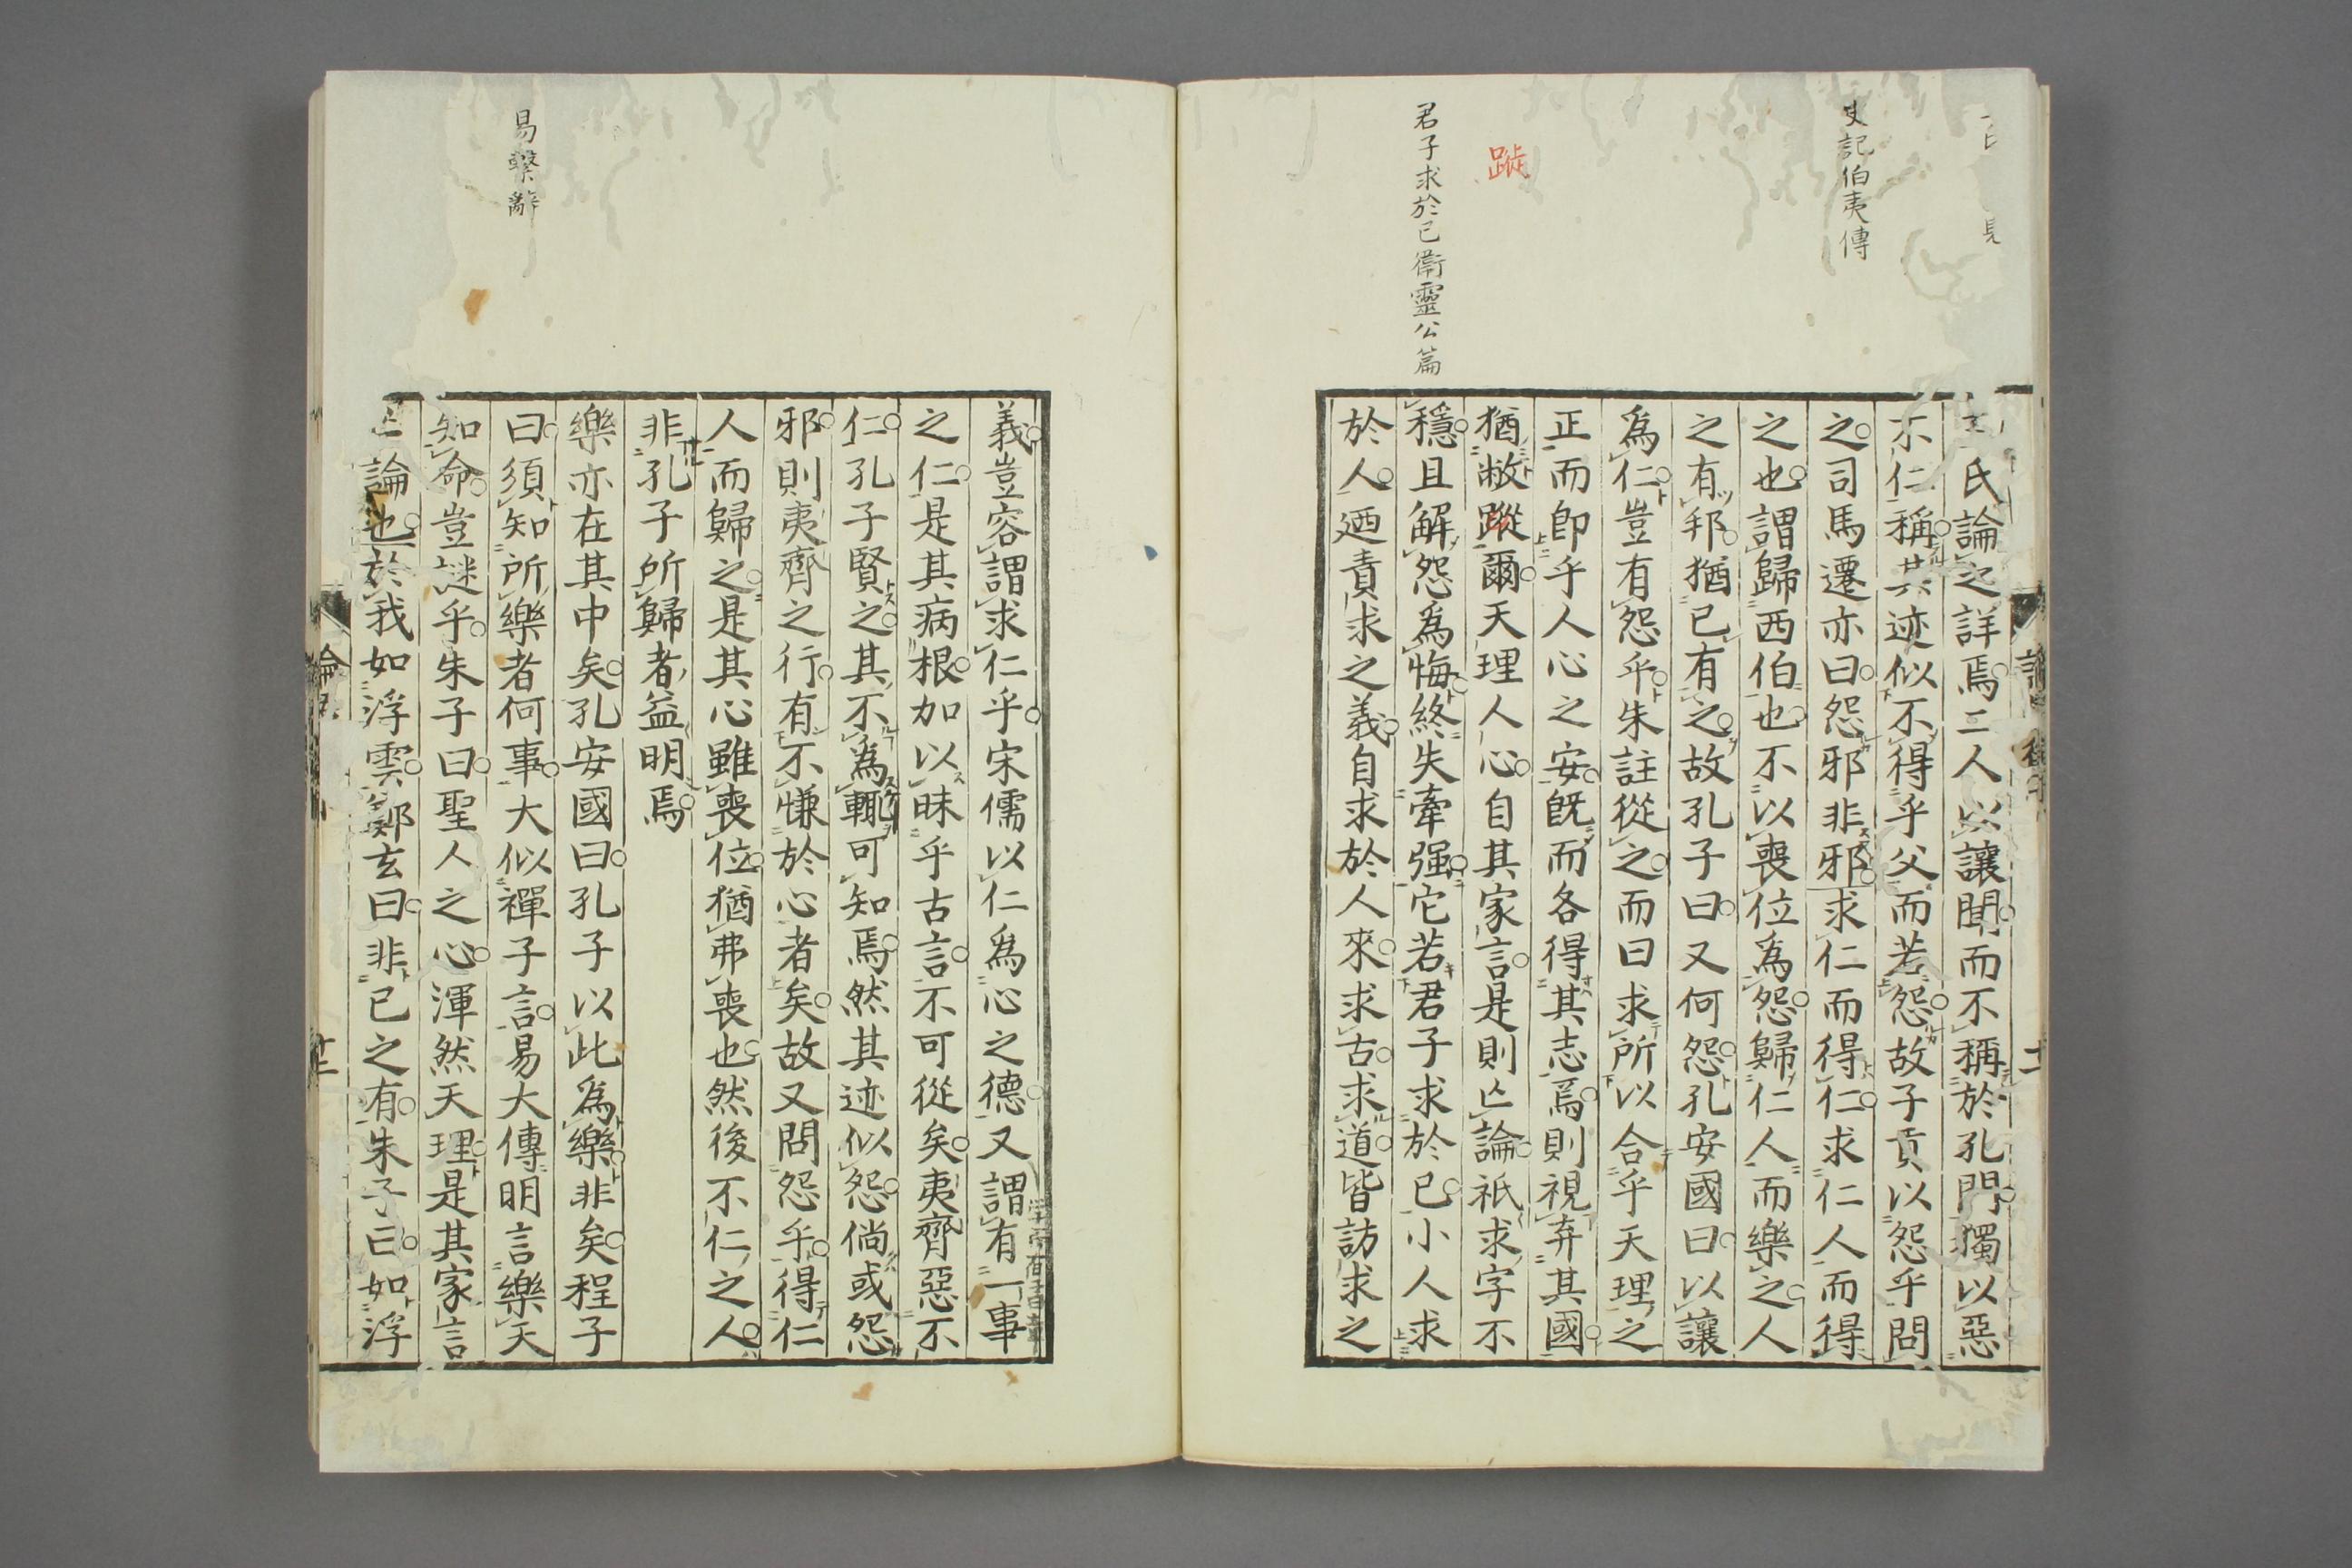 史記伯夷傳
蹝
君子求於己衞靈公篇
氏論之詳焉二人以讓聞而不稱於孔門獨以惡
不仁稱其迹似不得乎父而若怨故子貢以怨乎問
之司馬遷亦曰怨邪非邪求仁而得仁求仁人而得
之也謂歸西伯也不以喪位爲怨歸仁人而樂之人
之有邦猶己有之故孔子曰又何怨孔安國曰以讓
爲仁豈有怨乎朱註從之而曰求所以合乎天理之
正而卽乎人心之安旣而各得其志焉則視弃其國
猶敝蹤爾天理人心自其家言是則亾論祇求字不
穩且解怨爲悔終失牽强它若君子求於己小人求
於人廼責求之義自求於人來求古求道皆訪求之
易繫辭
義豈容謂求仁乎宋儒以仁爲心之德又謂有一事
之仁是其病根加以昧乎古言不可從矣夷齊惡不
仁孔子賢之其不爲輒可知焉然其迹似怨倘或怨
邪則夷齊之行有不慊於心者矣故又問怨乎得仁
人而歸之是其心雖喪位猶弗喪也然後不仁之人
非孔子所歸者益明焉
樂亦在其中矣孔安國曰孔子以此爲樂非矣程子
曰須知所樂者何事大似禪子言易大傳明言樂天
知命豈謎乎朱子曰聖人之心渾然天理是其家言
論也於我如浮雲鄭玄曰非己之有朱子曰如浮